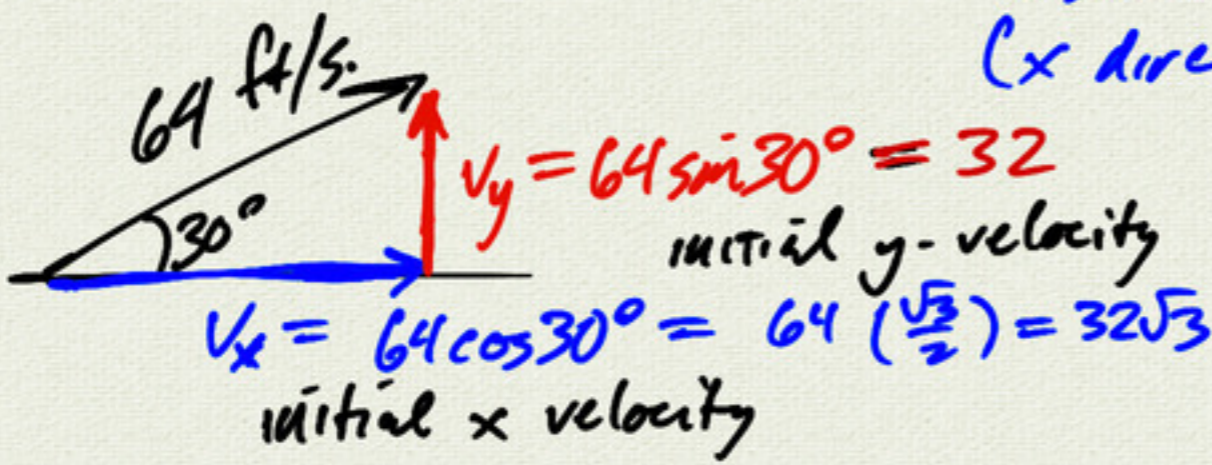 (x dire
64 ft/s.
v_y = 64 sin 30° = 32
30°
initial y-velocity
v_x = 64 cos 30° = 64 (√3/2) = 32√3
initial x velocity